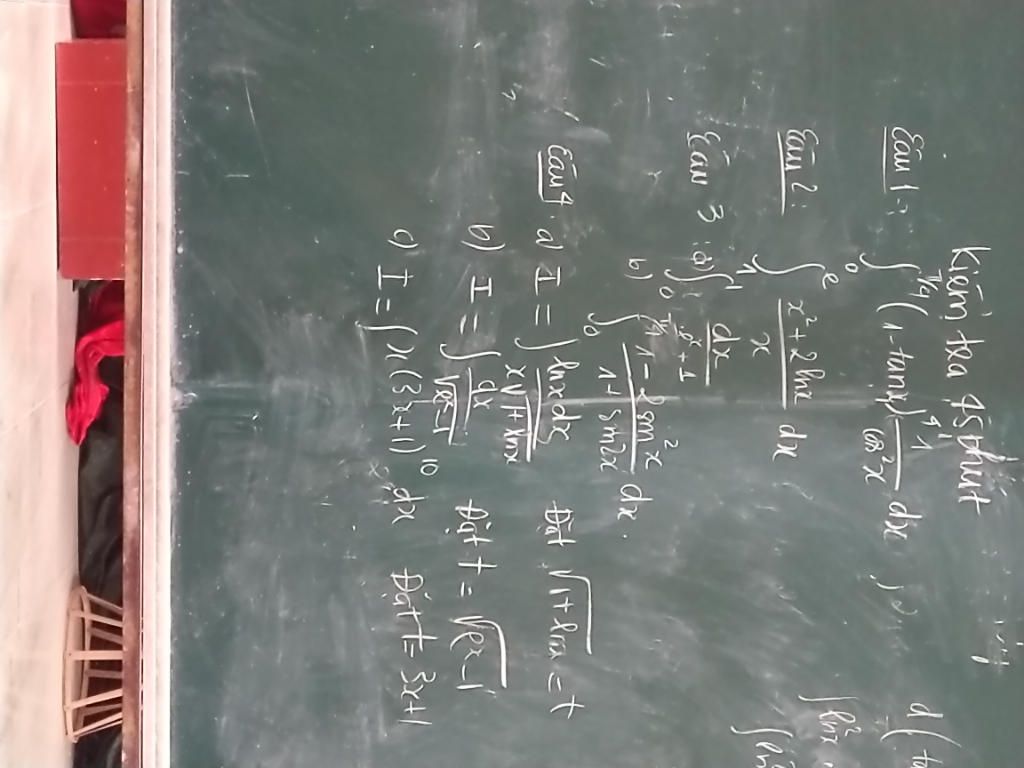 Kiểm tra 45 phút
Câu 1: ∫₀^{π/4} (1 - tanx)⁴ · 1/cos²x dx
Câu 2: ∫₁^e (x² + 2lnx)/x dx
Câu 3: a) ∫₀¹ dx/(eˣ + 1)
b) ∫₀^{π/4} (1 - 2sin²x)/(1 + sin2x) dx
Câu 4: a) I = ∫ lnxdx/(x√(1 + lnx)) Đặt √(1 + lnx) = t
b) I = ∫ dx/√(eˣ - 1) Đặt t = √(eˣ - 1)
c) I = ∫ x(3x + 1)¹⁰ dx Đặt t = 3x + 1